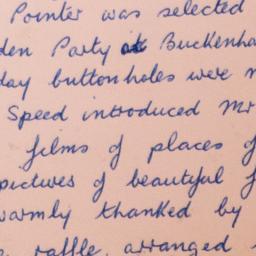 Pointer was selected
den Party at Buckenha
day buttonholes were
Speed introduced Mr
films of places of
pictures of beautiful f
warmly thanked by
raffle, arranged